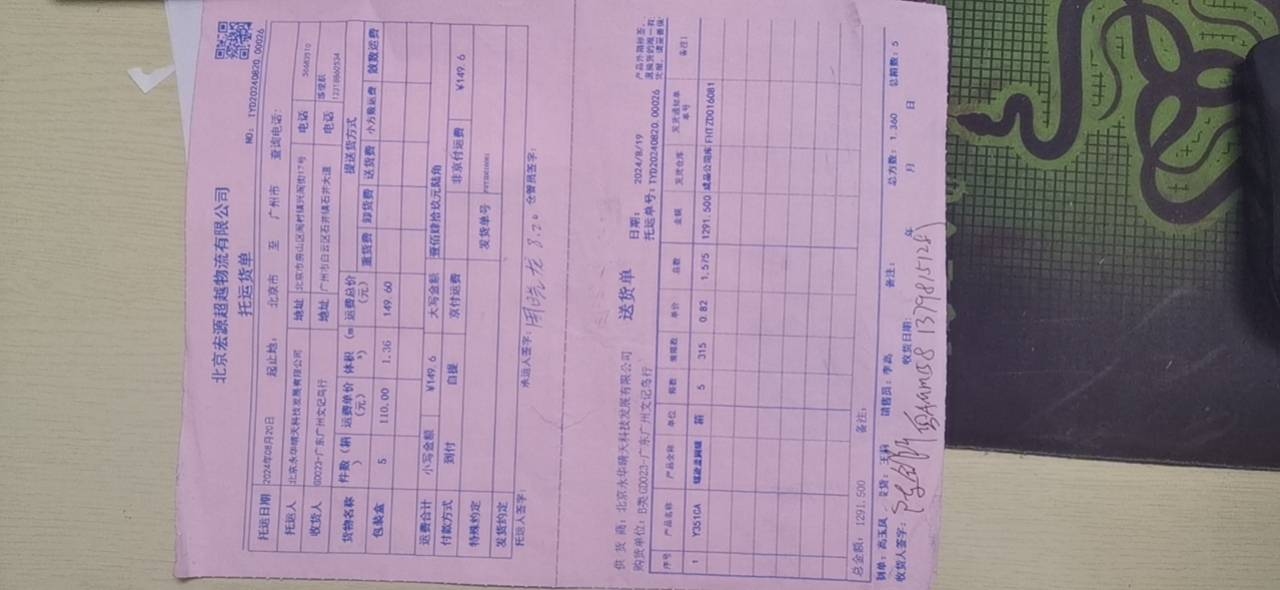 北京宏源超越物流有限公司
托运货单
NO: TYD20240820.00026
托运日期 2024年08月20日 起止地: 北京市 至 广州市 查询电话:
托运人 北京永华晴天科技发展有限公司 地址 北京市房山区阎村镇兴阎街17号 电话
收货人 GD023-广东广州文记鸟行 地址 广州市白云区石井镇石井大道 电话
货物名称 件数(箱) 运费单价(元) 体积(m³) 运费总价(元) 提送货方式
重货费 卸货费 送货费 小方数运费 散数运费
包装盒 5 110.00 1.36 149.60
运费合计 小写金额 ¥149.6 大写金额 壹佰肆拾玖元陆角
付款方式 到付 自提 京付运费 非京付运费 ¥149.6
特殊约定 发货单号
发货约定
托运人签字: 承运人签字: 周晓龙 8.20 仓管员签字:
送货单
供货商: 北京永华晴天科技发展有限公司 日期: 2024/8/19
购货单位: B类GD023-广东广州文记鸟行 托运单号: TYD20240820.00026
序号 产品名称 产品全称 单位 箱数 单价 总数 金额 发货仓库 发货通知单单号 备注:
1 Y351CA 箱 5 315 0.82 1,575 1291.500 成品公司库 FHTZD016081
总金额: 1291.500 备注:
制单: 高玉凤 销售员: 李高 备注: 总方数: 1.360 总箱数: 5
收货人签字: 收货日期: 年 月 日
13798151281